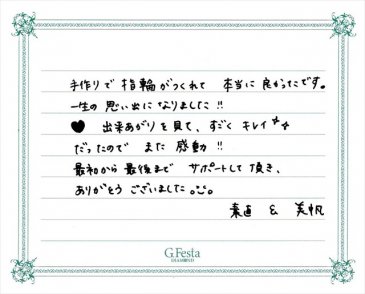 手作りで 指輪がつくれて 本当に 良かったです。
一生の 思い出に なりました!!
♥ 出来あがりを 見て、すごく キレイ
だったので また 感動!!
最初から 最後まで サポートして 頂き、
ありがとう ございました。
素直 & 美帆
G.Festa
DIAMOND